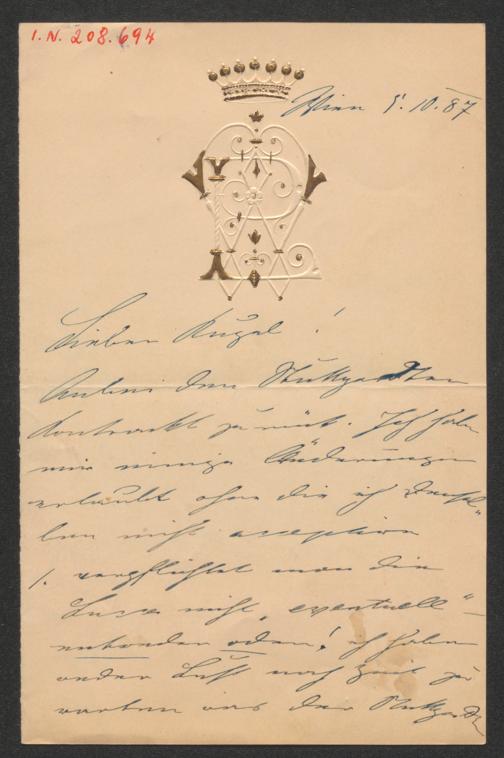 I. N. 208.694
Wien 5. 10. 87
Lieber Kugel!
Anbei den Stuttgardter
Kontrackt zurück. Ich habe
mir einige Änderungen
erlaubt ohne die ich densel-
ben nicht acceptire
1. verpflichtet man die
nicht „eventuell" –
entweder oder! ich habe
weder Lust noch Zeit zu
warten was der Stuttgardter